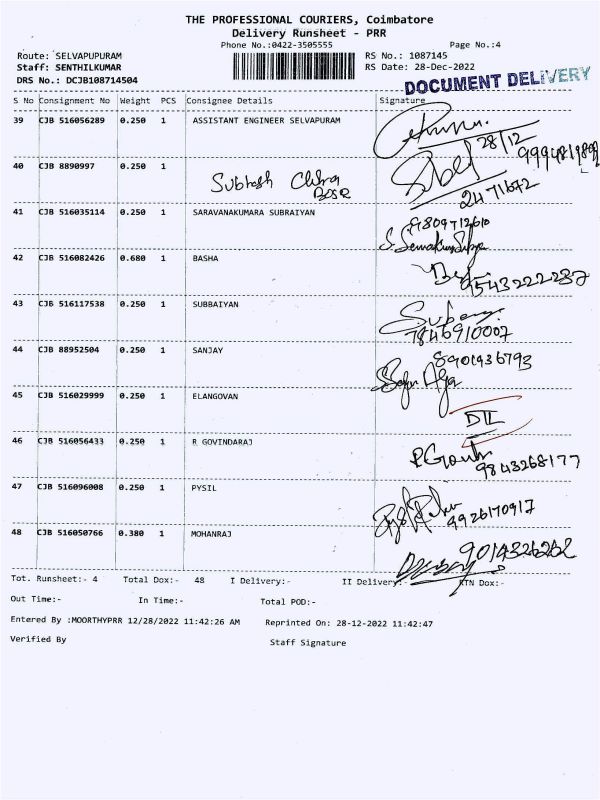 THE PROFESSIONAL COURIERS, Coimbatore
Delivery Runsheet - PRR
Phone No.:0422-3505555 Page No.:4
Route: SELVAPUPURAM RS No.: 1087145
Staff: SENTHILKUMAR RS Date: 28-Dec-2022
DRS No.: DCJB108714504
DOCUMENT DELIVERY
S No Consignment No Weight PCS Consignee Details Signature
39 CJB 516056289 0.250 1 ASSISTANT ENGINEER SELVAPURAM
28/12
40 CJB 8890997 0.250 1
Subhash
2471672
41 CJB 516035114 0.250 1 SARAVANAKUMARA SUBRAIYAN
9809712610
42 CJB 516082426 0.680 1 BASHA
9543222237
43 CJB 516117538 0.250 1 SUBBAIYAN
7846910007
44 CJB 88952504 0.250 1 SANJAY
8901936793
45 CJB 516029999 0.250 1 ELANGOVAN
46 CJB 516056433 0.250 1 R GOVINDARAJ
9843268177
47 CJB 516096008 0.250 1 PYSIL
9926170917
48 CJB 516050766 0.380 1 MOHANRAJ
9014326262
Tot. Runsheet:- 4 Total Dox:- 48 I Delivery:- II Delivery:- RTN Dox:-
Out Time:- In Time:- Total POD:-
Entered By :MOORTHYPRR 12/28/2022 11:42:26 AM Reprinted On: 28-12-2022 11:42:47
Verified By Staff Signature